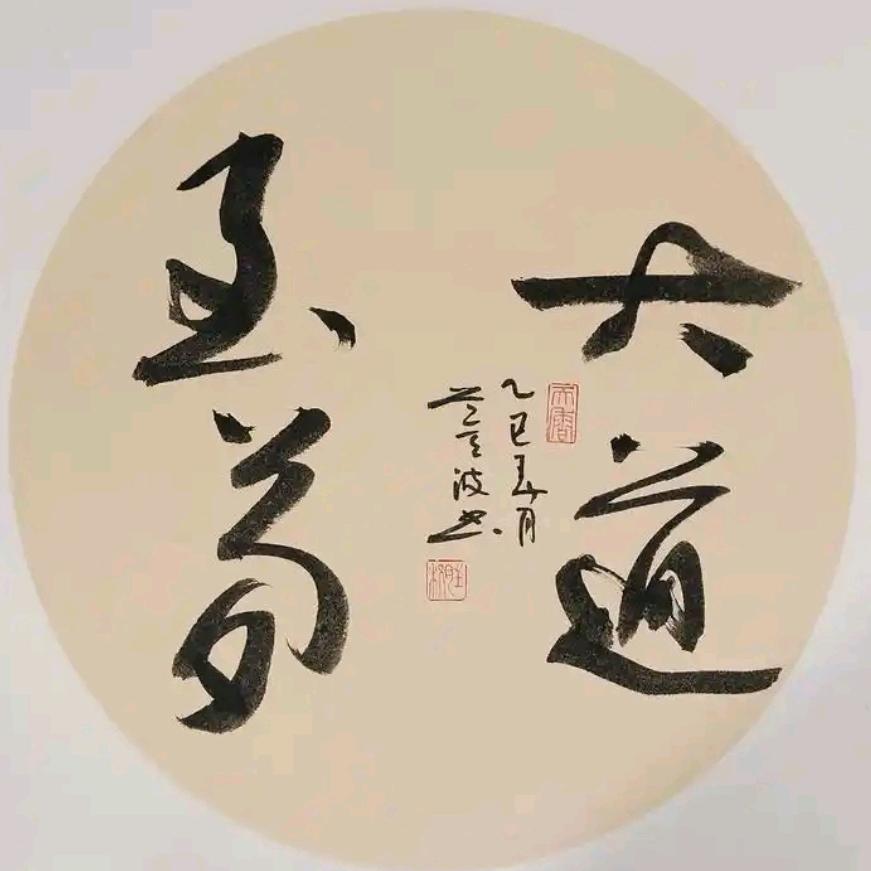 大道
至简
乙巳月
波书